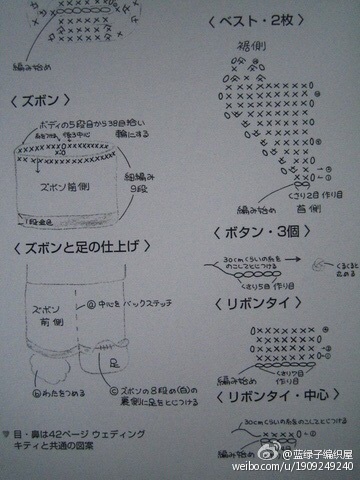 編み始め
〈 ズボン 〉
ボディの5段目から38目拾い
輪にする
ズボン前側
細編み
9段
1段金色
〈 ズボンと足の仕上げ 〉
ズボン
前側
ⓐ中心をバックステッチ
足
ⓑわたをつめる
ⓒズボンの8段め(白)の
裏側に足をとじつける
▼ 目・鼻は42ページ ウェディング
キティと共通の図案
〈 ベスト・2枚 〉
裾側
くさり2目 作り目
編み始め
首側
〈 ボタン・3個 〉
30cmくらいの糸を
のこしてとじつける
くるくると
丸める
くさり5目 作り目
〈 リボンタイ 〉
くさり7目
作り目
編み始め
〈 リボンタイ・中心 〉
30cmくらいの糸をのこしてとじつける
編み始め
@蓝绿子编织屋
weibo.com/u/1909249240